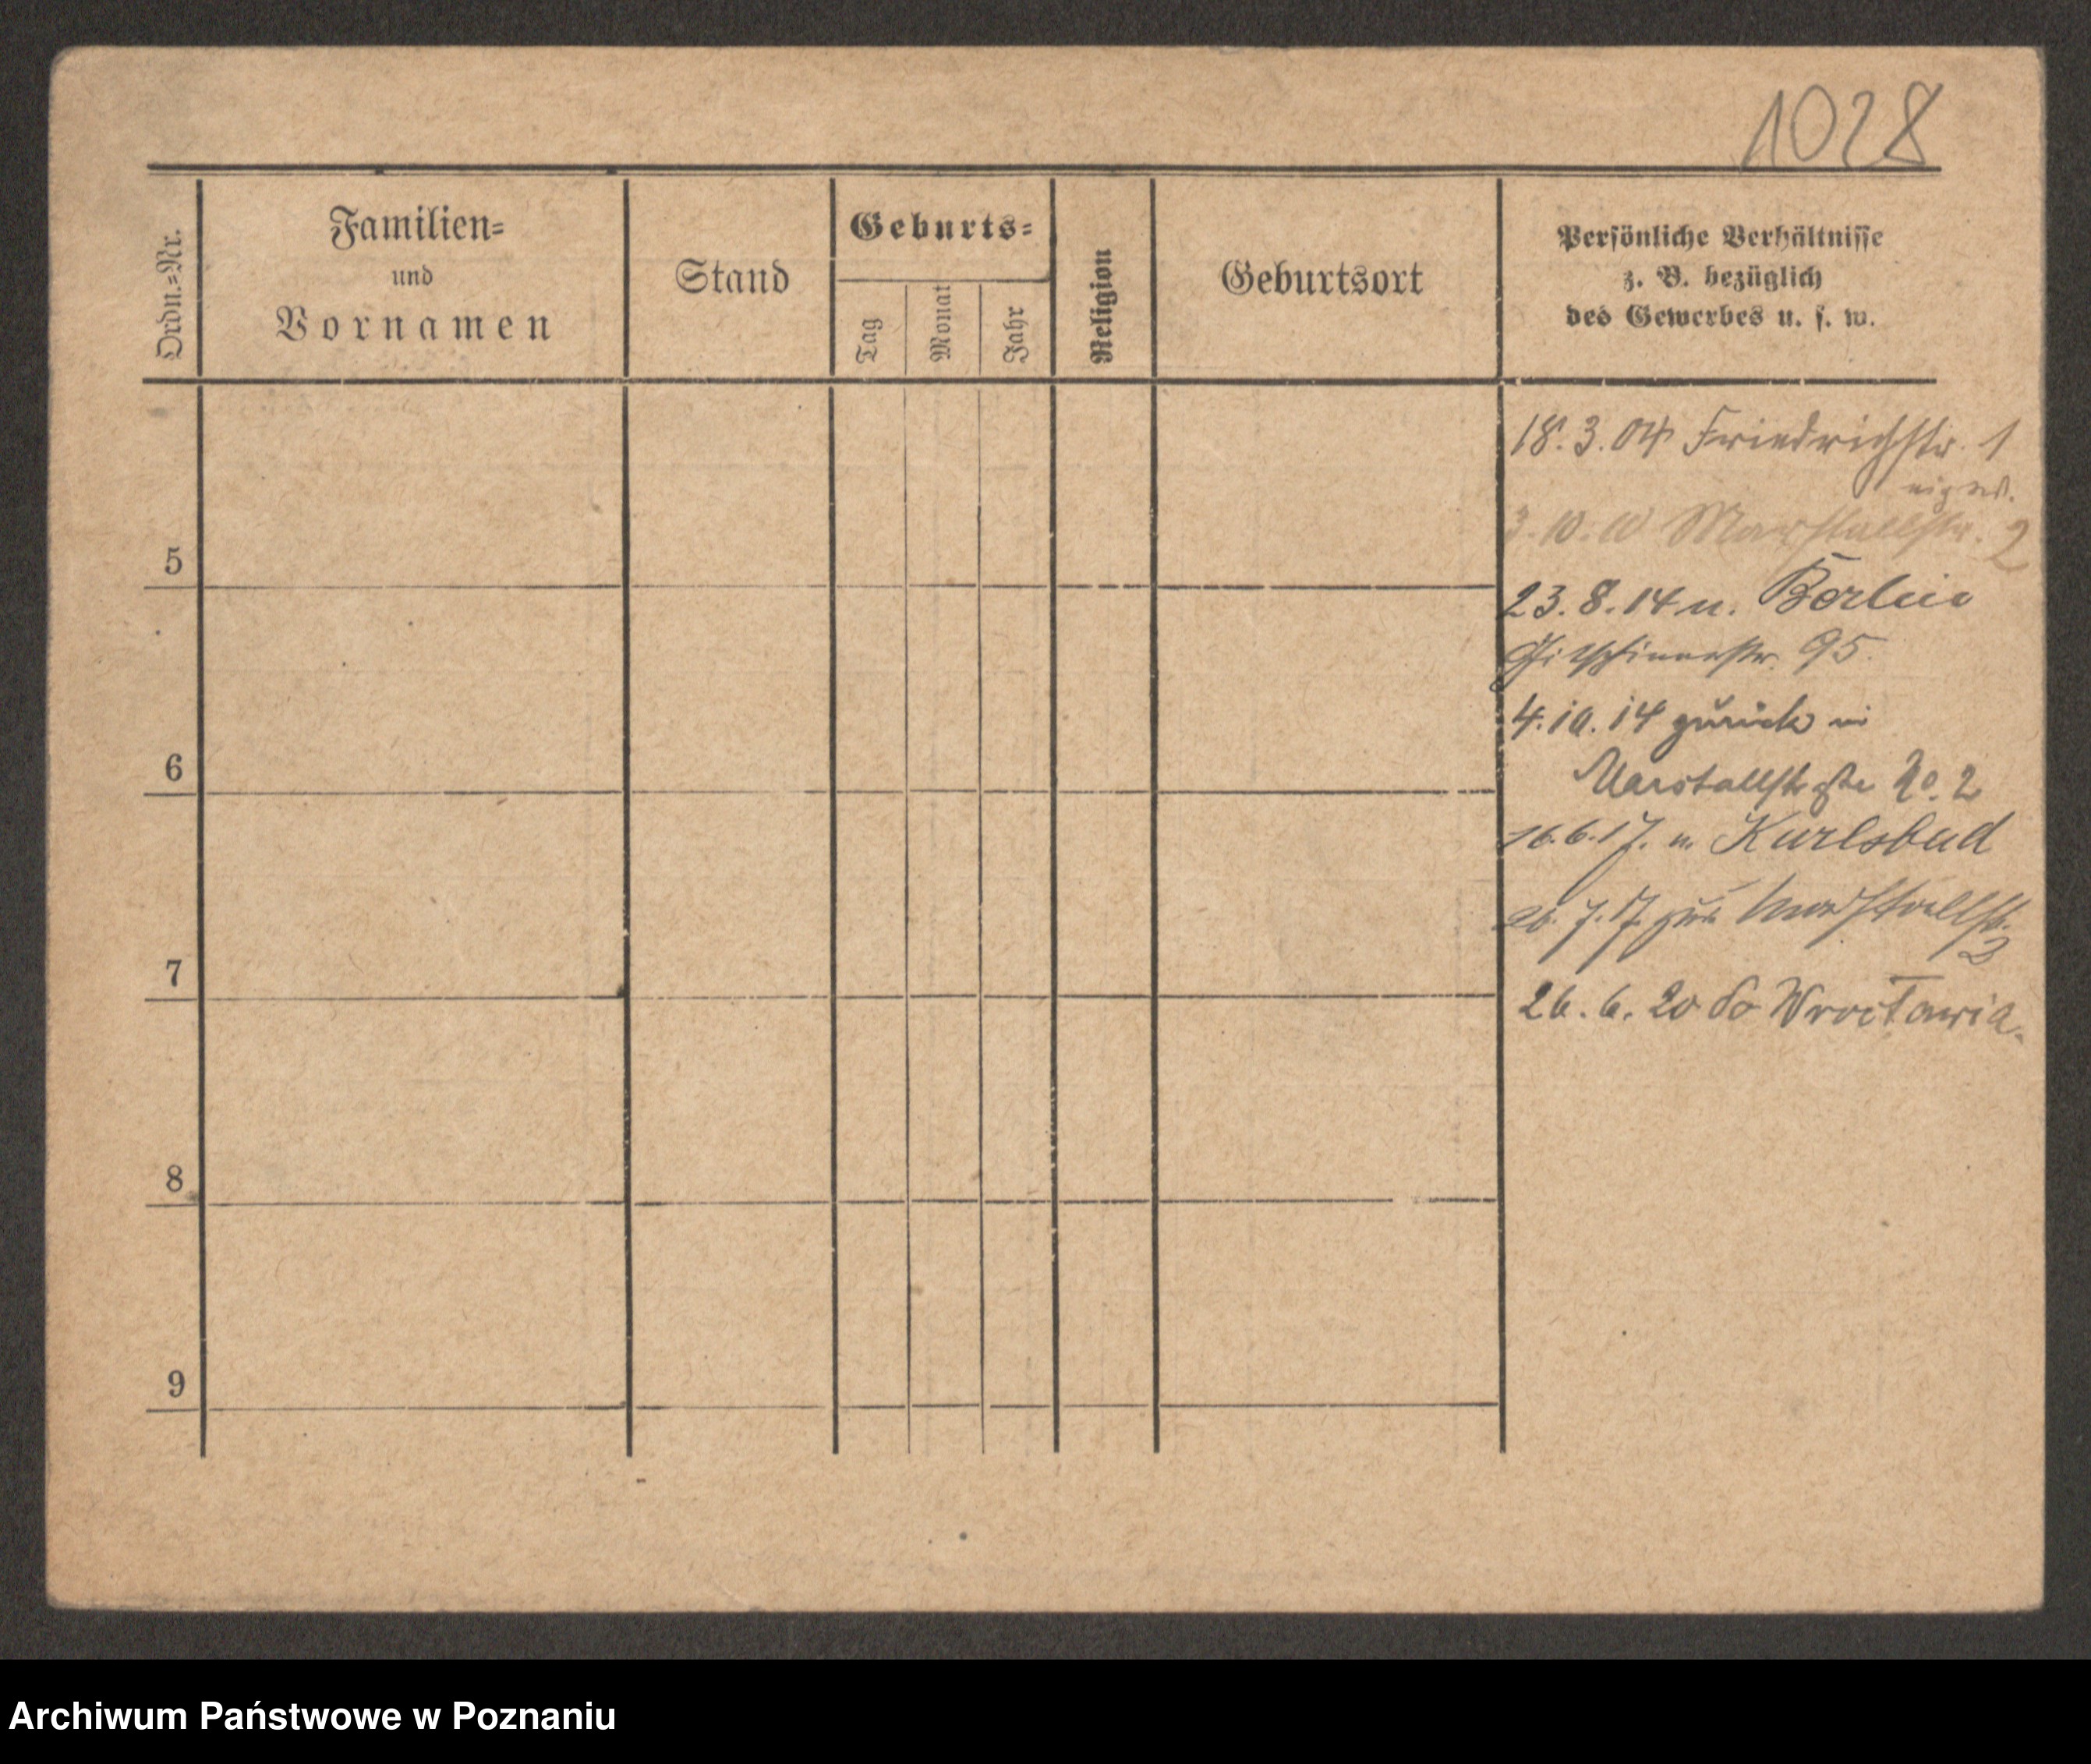 1028
Ordn.=Nr.
Familien=
und
Vornamen
Stand
Geburts=
Tag
Monat
Jahr
Religion
Geburtsort
Persönliche Verhältnisse
z. B. bezüglich
des Gewerbes u. s. w.
18. 3. 04 Friedrichstr. 1
3. 10. 10 Marstallstr. 2
5
23. 8. 14 n. Berlin
Gitschinerstr. 95.
4. 10. 14 zurück in
6
No. 2
16. 6. 17. n. Karlsbad
26. 7. 17 zur. Marstallstr.
2
7
26. 6. 20 do Wrocławia.
8
9
Archiwum Państwowe w Poznaniu